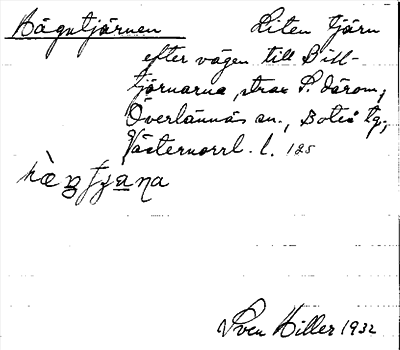 Bågatjärnen Liten tjärn
efter vägen till Bill-
tjärnarna, strax S. därom,
Överlännäs sn., Boteå tg.,
Västernorrl. l. 125
Sven Hiller 1932